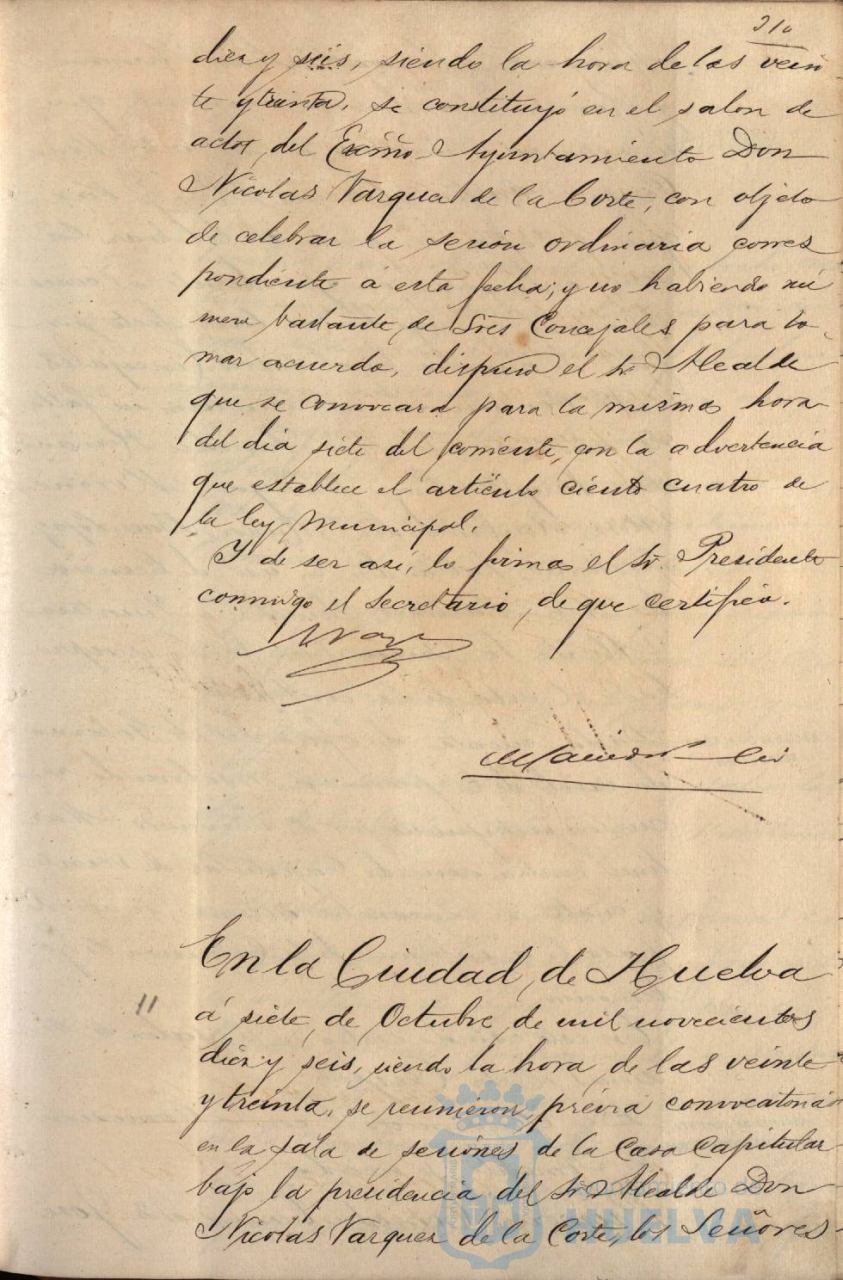 210
diez y seis, siendo la hora de las vein
te y treinta, se constituyó en el salon de
actos del Excmo. Ayuntamiento Don
Nicolas Vazquez de la Corte, con objeto
de celebrar la sesión ordinaria corres
pondiente á esta fecha; y no habiendo nú
mero bastante de Sres Concejales para to-
mar acuerdo, dispuso el Sr. Alcalde
que se convocara para la misma hora
del dia siete del corriente, con la advertencia
que establece el artículo ciento cuatro de
la ley Municipal.
Y de ser así, lo firma el Sr. Presidente
conmigo el Secretario, de que certifico.
En la Ciudad de Huelva
11
á siete de Octubre de mil novecientos
diez y seis, siendo la hora de las veinte
y treinta, se reunieron, prévia convocatoria
en la sala de sesiones de la Casa Capitular
bajo la presidencia del Sr. Alcalde Don
Nicolas Vazquez de la Corte, los Señores
HUELVA